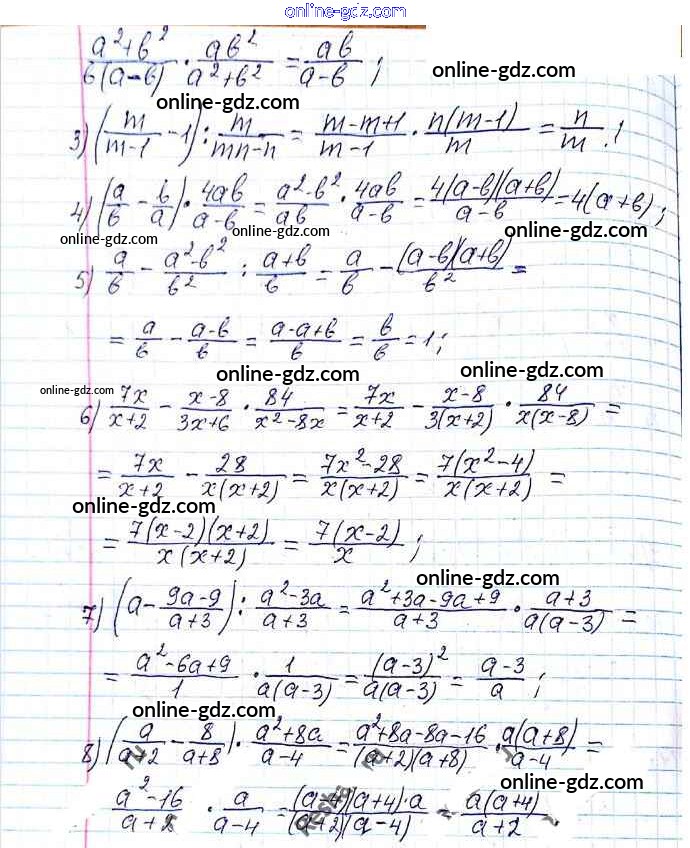 online-gdz.com
(a²+b²)/(b(a-b)) · ab²/(a²+b²) = ab/(a-b) ; online-gdz.com
online-gdz.com
3) (m/(m-1) - 1) : m/(mn-n) = (m-m+1)/(m-1) · n(m-1)/m = n/m !
online-gdz.com
4) (a/b - b/a) · 4ab/(a-b) = (a²-b²)/ab · 4ab/(a-b) = 4(a-b)(a+b)/(a-b) = 4(a+b) ;
online-gdz.com online-gdz.com
5) a/b - (a²-b²)/b² : (a+b)/b = a/b - (a-b)(a+b)/b² =
= a/b - (a-b)/b = (a-a+b)/b = b/b = 1 ;
online-gdz.com online-gdz.com
6) 7x/(x+2) - (x-8)/(3x+6) · 84/(x²-8x) = 7x/(x+2) - (x-8)/(3(x+2)) · 84/(x(x-8)) =
= 7x/(x+2) - 28/(x(x+2)) = (7x²-28)/(x(x+2)) = 7(x²-4)/(x(x+2)) =
online-gdz.com
= 7(x-2)(x+2)/(x(x+2)) = 7(x-2)/x ;
online-gdz.com
7) (a - (9a-9)/(a+3)) : (a²-3a)/(a+3) = (a²+3a-9a+9)/(a+3) · (a+3)/(a(a-3)) =
= (a²-6a+9)/1 · 1/(a(a-3)) = (a-3)²/(a(a-3)) = (a-3)/a ;
online-gdz.com
8) (a/(a+2) - 8/(a+8)) · (a²+8a)/(a-4) = (a²+8a-8a-16)/((a+2)(a+8)) · a(a+8)/(a-4) =
online-gdz.com
(a²-16)/(a+2) · a/(a-4) = (a-4)(a+4)·a/((a+2)(a-4)) = a(a+4)/(a+2)
online-gdz.com